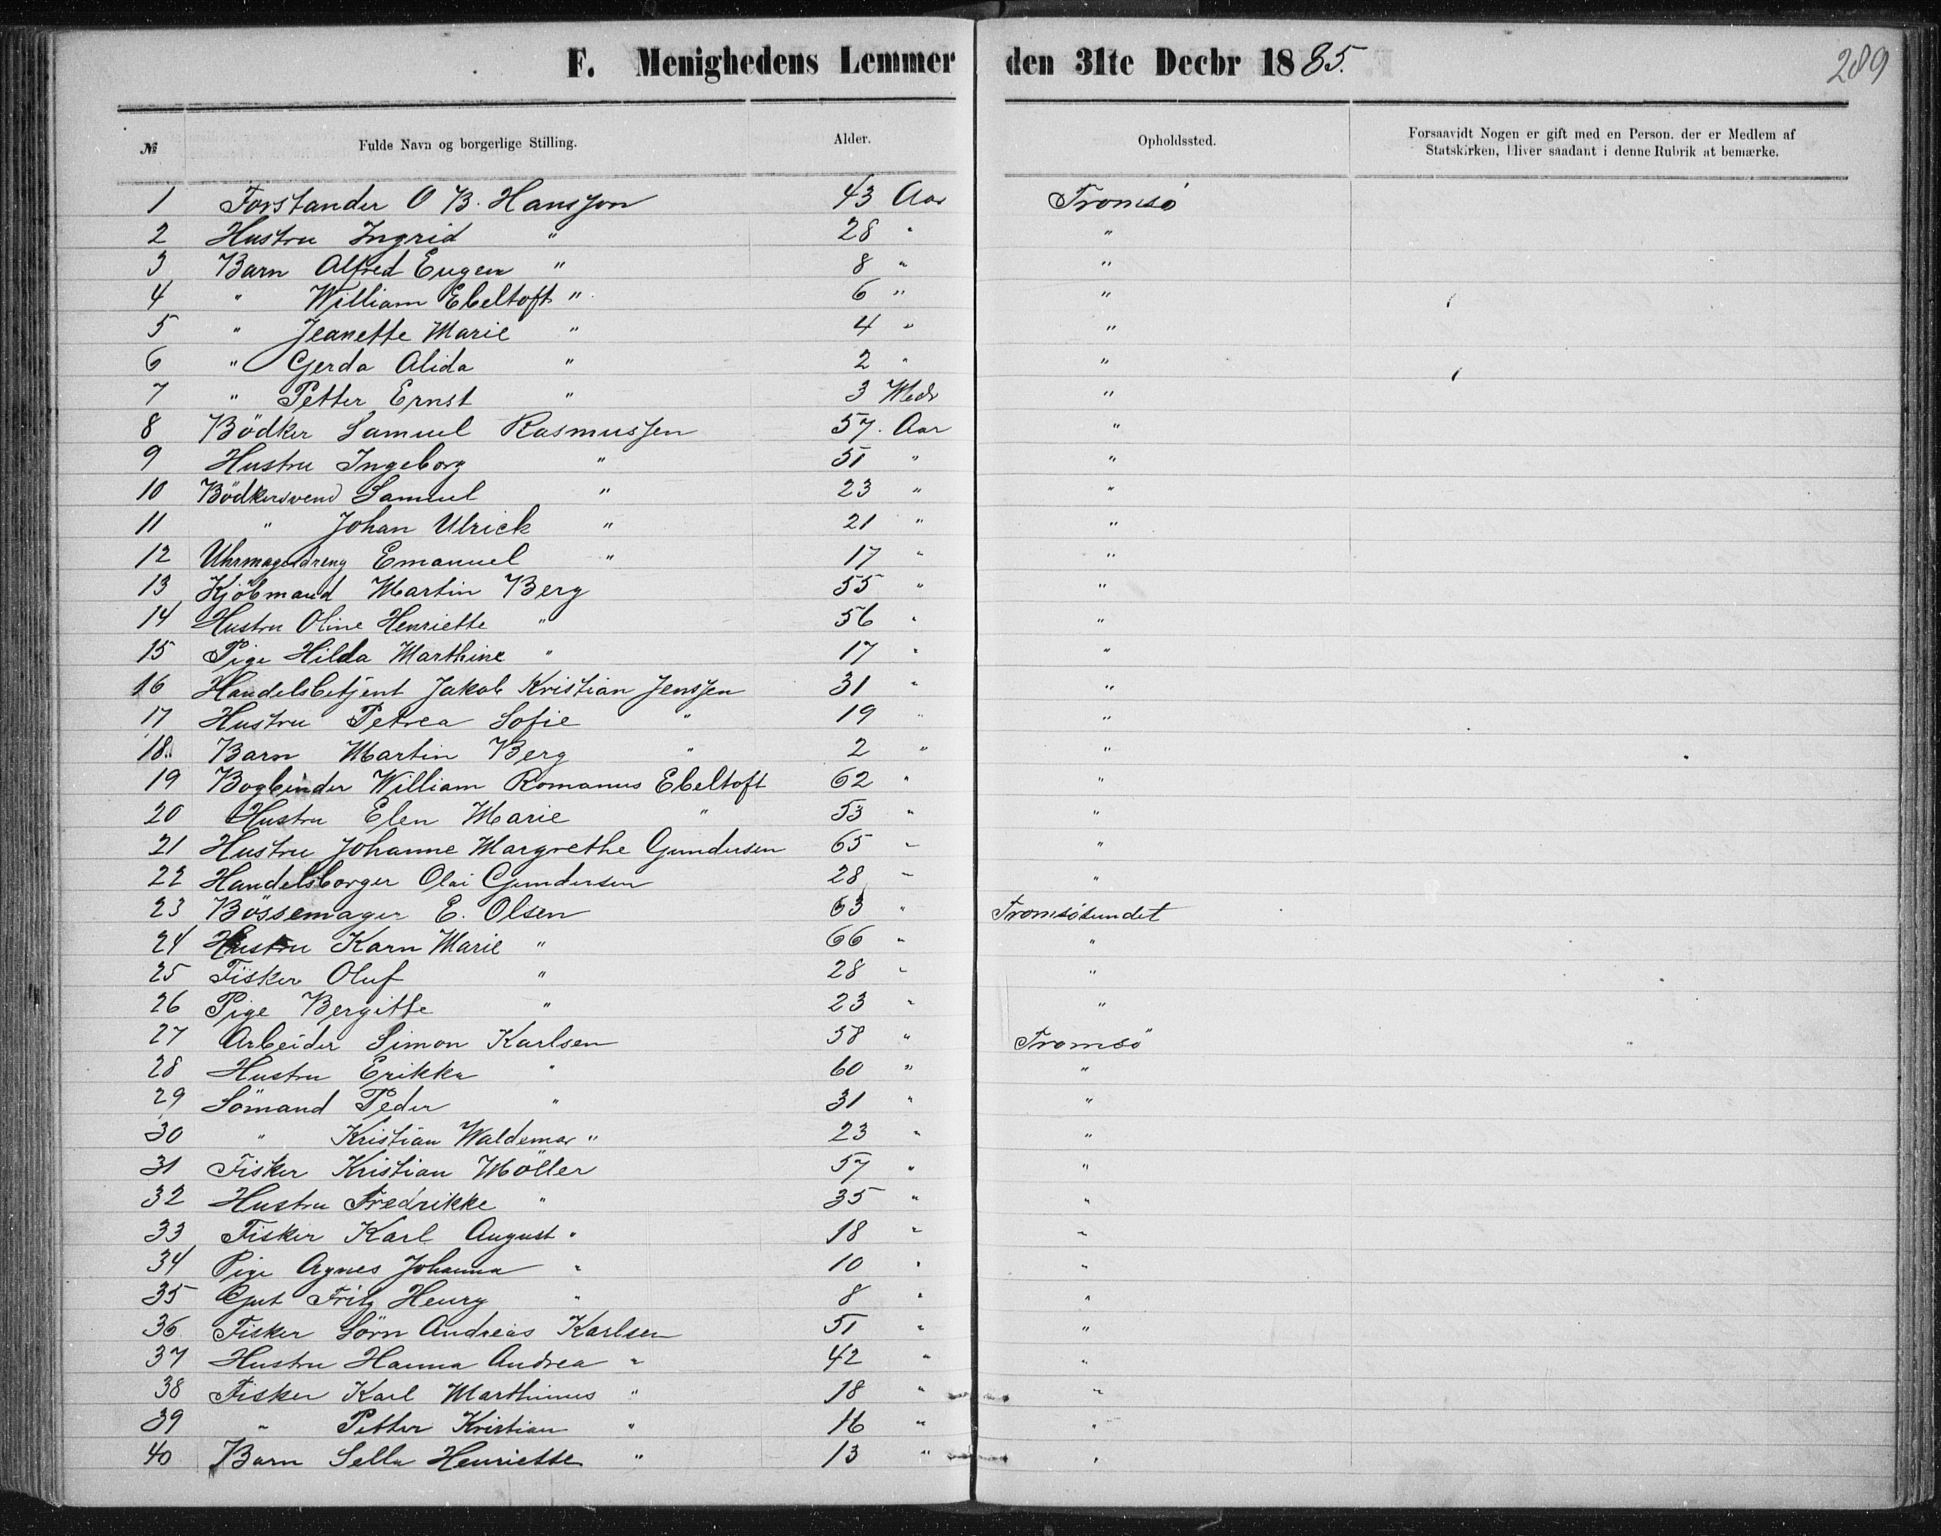 F. Menighedens Lemmer den 31te Decbr 1885. 289
№ Fulde Navn og borgerlige Stilling. Alder. Opholdssted. Forsaavidt Nogen er gift med en Person, der er Medlem af
Statskirken, bliver saadant i denne Rubrik at bemærke.
1 Forstander O B. Hanssen 43 Aar Tromsö
2 Hustru Ingrid " 28 " "
3 Barn Alfred Eugen " 8 " "
4 " William Ebeltoft " 6 " "
5 " Jeanette Marie " 4 " "
6 " Gerda Alida " 2 " "
7 " Petter Ernst " 3 Mdr "
8 Bödker Samuel Rasmussen 57. Aar "
9 Hustru Ingeborg " 51 " "
10 Bödkersvend Samuel " 23 " "
11 " Johan Ulrick " 21 " "
12 Uhrmagerdreng Emanuel " 17 " "
13 Kjöbmand Martin Berg 55 " "
14 Hustru Oline Henriette " 56 " "
15 Pige Hilda Marthine " 17 " "
16 Handelsbetjent Jakob Kristian Jenssen 31 " "
17 Hustru Petrea Sofie " 19 " "
18. Barn Martin Berg " 2 " "
19 Bogbinder William Romanus Ebeltoft 62 " "
20 Hustru Elen Marie " 53 " "
21 Hustru Johanne Margrethe Gundersen 65 " "
22 Handelsborger Olai Gundersen 28 " "
23 Bössemager E. Olsen 63 " Tromsösundet
24 Hustru Karn Marie " 66 " "
25 Fisker Oluf " 28 " "
26 Pige Bergitte " 23 " "
27 Arbeider Simon Karlsen 58 " Tromsö
28 Hustru Erikka " 60 " "
29 Sömand Peder " 31 " "
30 " Kristian Waldemar " 23 " "
31 Fisker Kristian Möller 57 " "
32 Hustru Fredrikke " 35 " "
33 Fisker Karl August " 18 " "
34 Pige Agnes Johanna " 10 " "
35 Gut Fritz Henry " 8 " "
36 Fisker Sörn Andreas Karlsen 51 " "
37 Hustru Hanna Andrea " 42 " "
38 Fisker Karl Marthinus " 18 " "
39 " Petter Kristian " 16 " "
40 Barn Sella Henriette " 13 " "